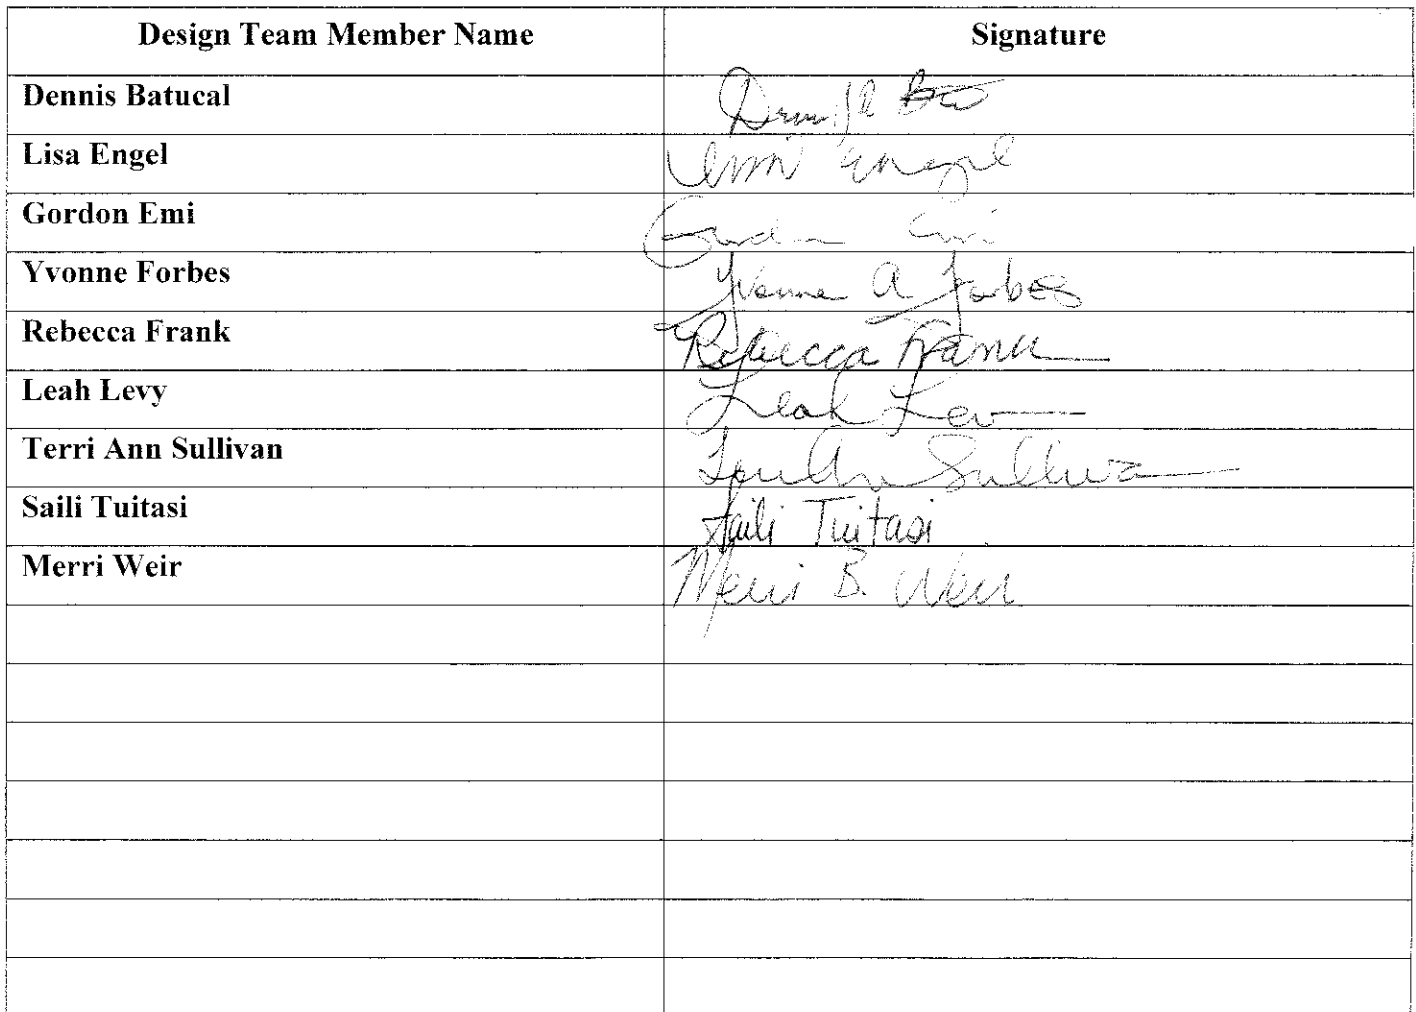 Design Team Member Name Signature
Dennis Batucal
Lisa Engel Engel
Gordon Emi Gordon Emi
Yvonne Forbes Yvonne A Forbes
Rebecca Frank Rebecca Frank
Leah Levy Leah
Terri Ann Sullivan Terri Ann Sullivan
Saili Tuitasi Saili Tuitasi
Merri Weir Merri B. Weir